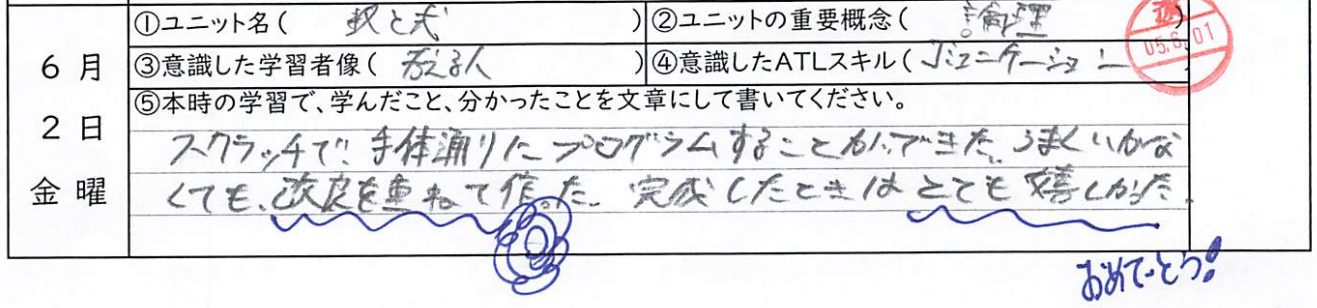 ①ユニット名( 数と式 )②ユニットの重要概念( 論理 )
05.6.01
6月 ③意識した学習者像( 考える人 )④意識したATLスキル( コミュニケーション )
⑤本時の学習で、学んだこと、分かったことを文章にして書いてください。
2日
スクラッチで、手体通りにプログラムすることがでできた。うまくいかな
金曜 くても、改良を重ねて作った。完成したときはとても嬉しかった
おめでとう!